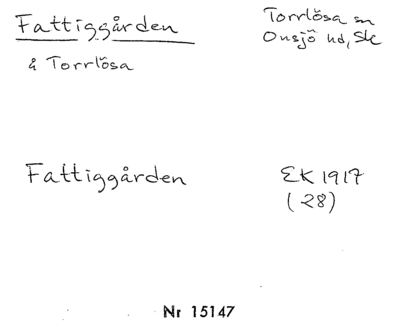 Fattiggården
Torrlösa sn
Onsjö hd, Sk
å Torrlösa
Fattiggården
EK 1917
(28)
Nr 15147